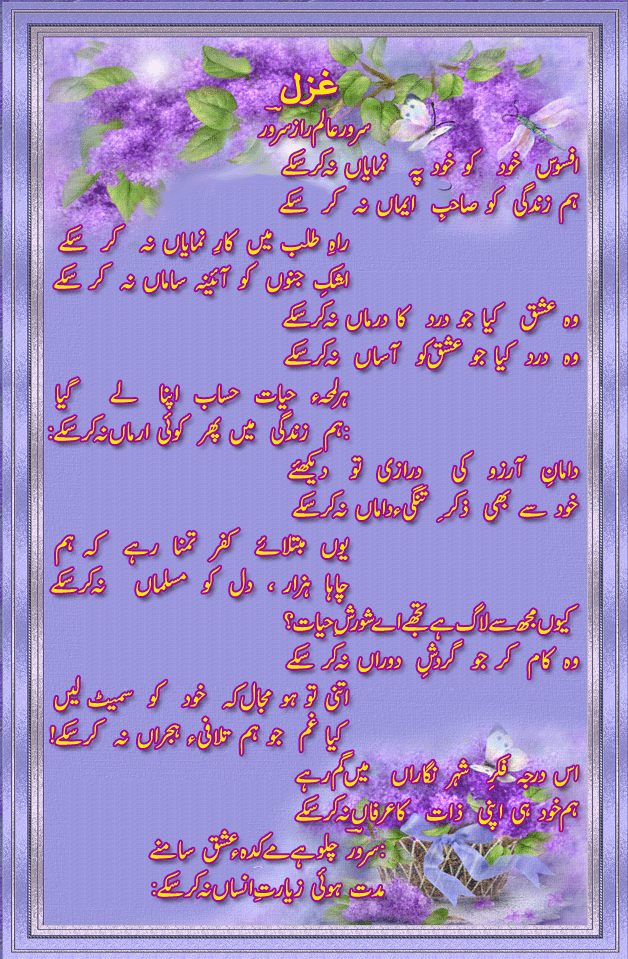 غزل
سرور عالم راز سرور
افسوس خود کو خود پہ نمایاں نہ کر سکے
ہم زندگی کو صاحبِ ایماں نہ کر سکے
راہِ طلب میں کارِ نمایاں نہ کر سکے
اشکِ جنوں کو آئینہ ساماں نہ کر سکے
وہ عشق کیا جو درد کا درماں نہ کر سکے
وہ درد کیا جو عشق کو آساں نہ کر سکے
ہر لمحہء حیات حساب اپنا لے گیا
:ہم زندگی میں پھر کوئی ارماں نہ کر سکے:
دامانِ آرزو کی درازی تو دیکھئے
خود سے بھی ذکرِ تنگیء داماں نہ کر سکے
یوں مبتلائے کفر تمنا رہے کہ ہم
چاہا ہزار ، دل کو مسلماں نہ کر سکے
کیوں مجھ سے لاگ ہے تجھے اے شورشِ حیات؟
وہ کام کر جو گردشِ دوراں نہ کر سکے
اتنی تو ہو مجال کہ خود کو سمیٹ لیں
کیا غم جو ہم تلافیء ہجراں نہ کر سکے!
اس درجہ فکرِ شہر نگاراں میں گم رہے
ہم خود ہی اپنی ذات کا عرفاں نہ کر سکے
:سرور چلو ہے مے کدہء عشق سامنے
مدت ہوئی زیارتِ انساں نہ کر سکے: